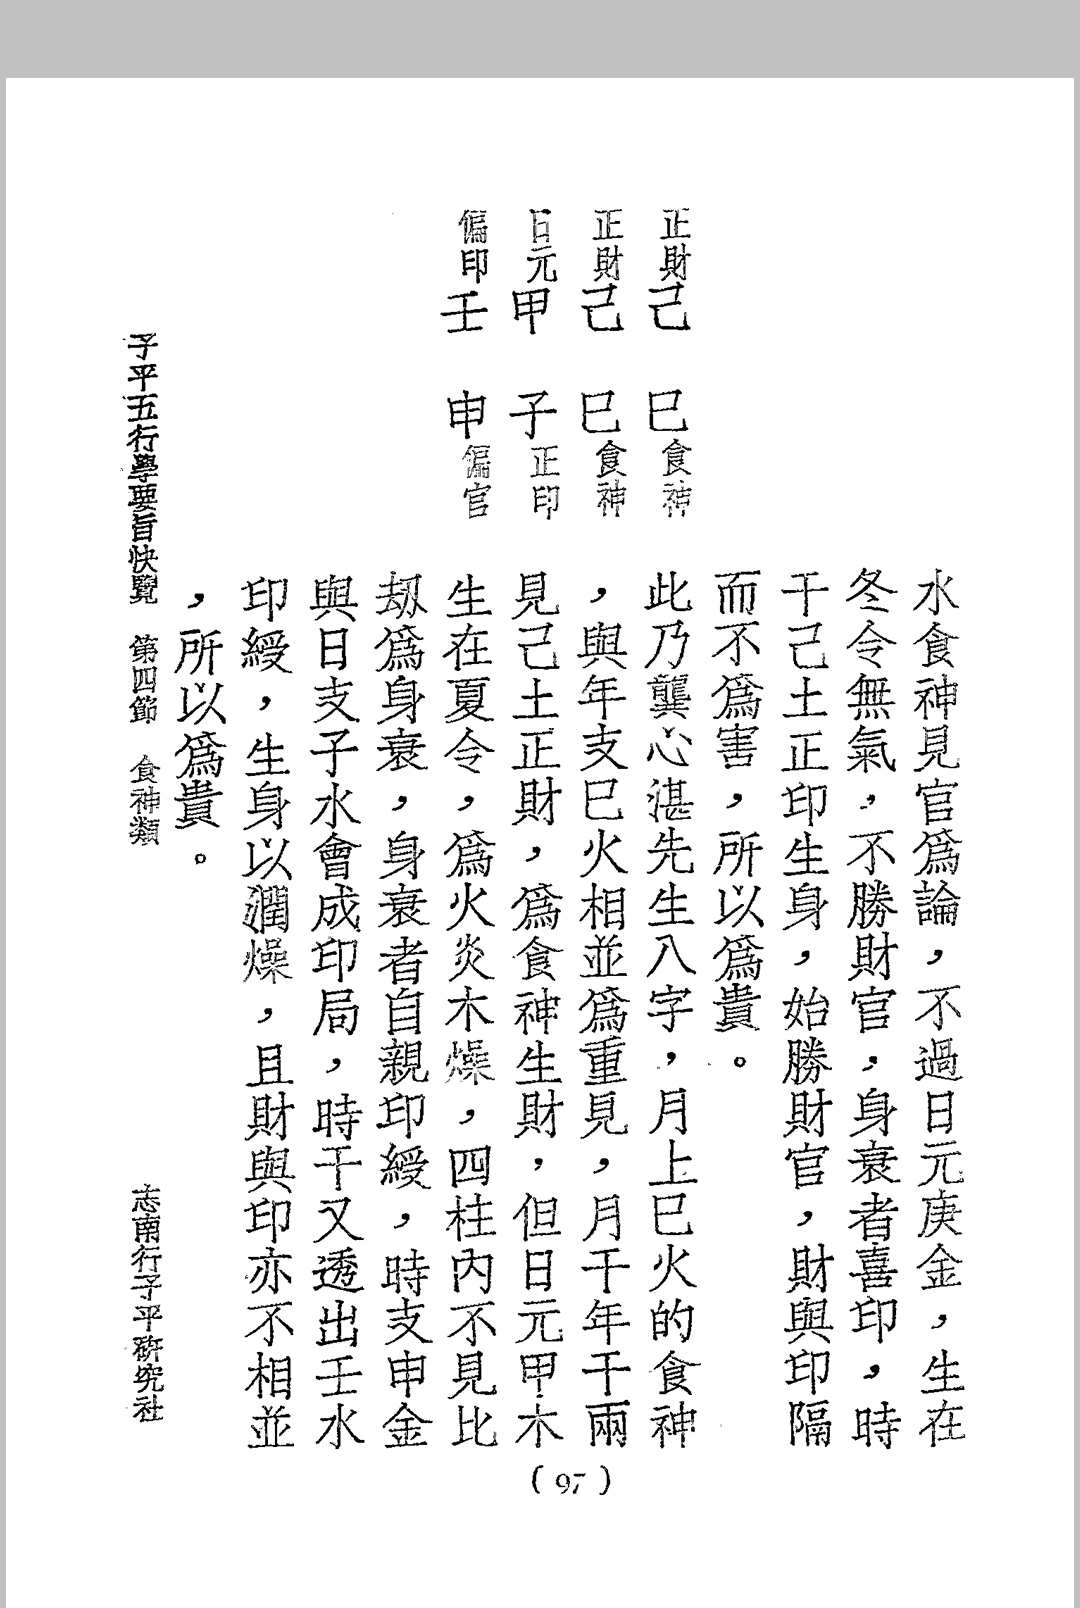 水食神見官爲論，不過日元庚金，生在
冬令無氣，不勝財官，身衰者喜印，時
干己土正印生身，始勝財官，財與印隔
而不爲害，所以爲貴。
正財己　巳食神
正財己　巳食神
日元甲　子正印
偏印壬　申偏官
此乃龔心湛先生八字，月上巳火的食神
，與年支巳火相並爲重見，月干年干兩
見己土正財，爲食神生財，但日元甲木
生在夏令，爲火炎木燥，四柱內不見比
刼爲身衰，身衰者自親印綬，時支申金
與日支子水會成印局，時干又透出壬水
印綬，生身以潤燥，且財與印亦不相並
，所以爲貴。
子平五行學要旨快覽　第四節　食神類　志南行子平硏究社
（97）